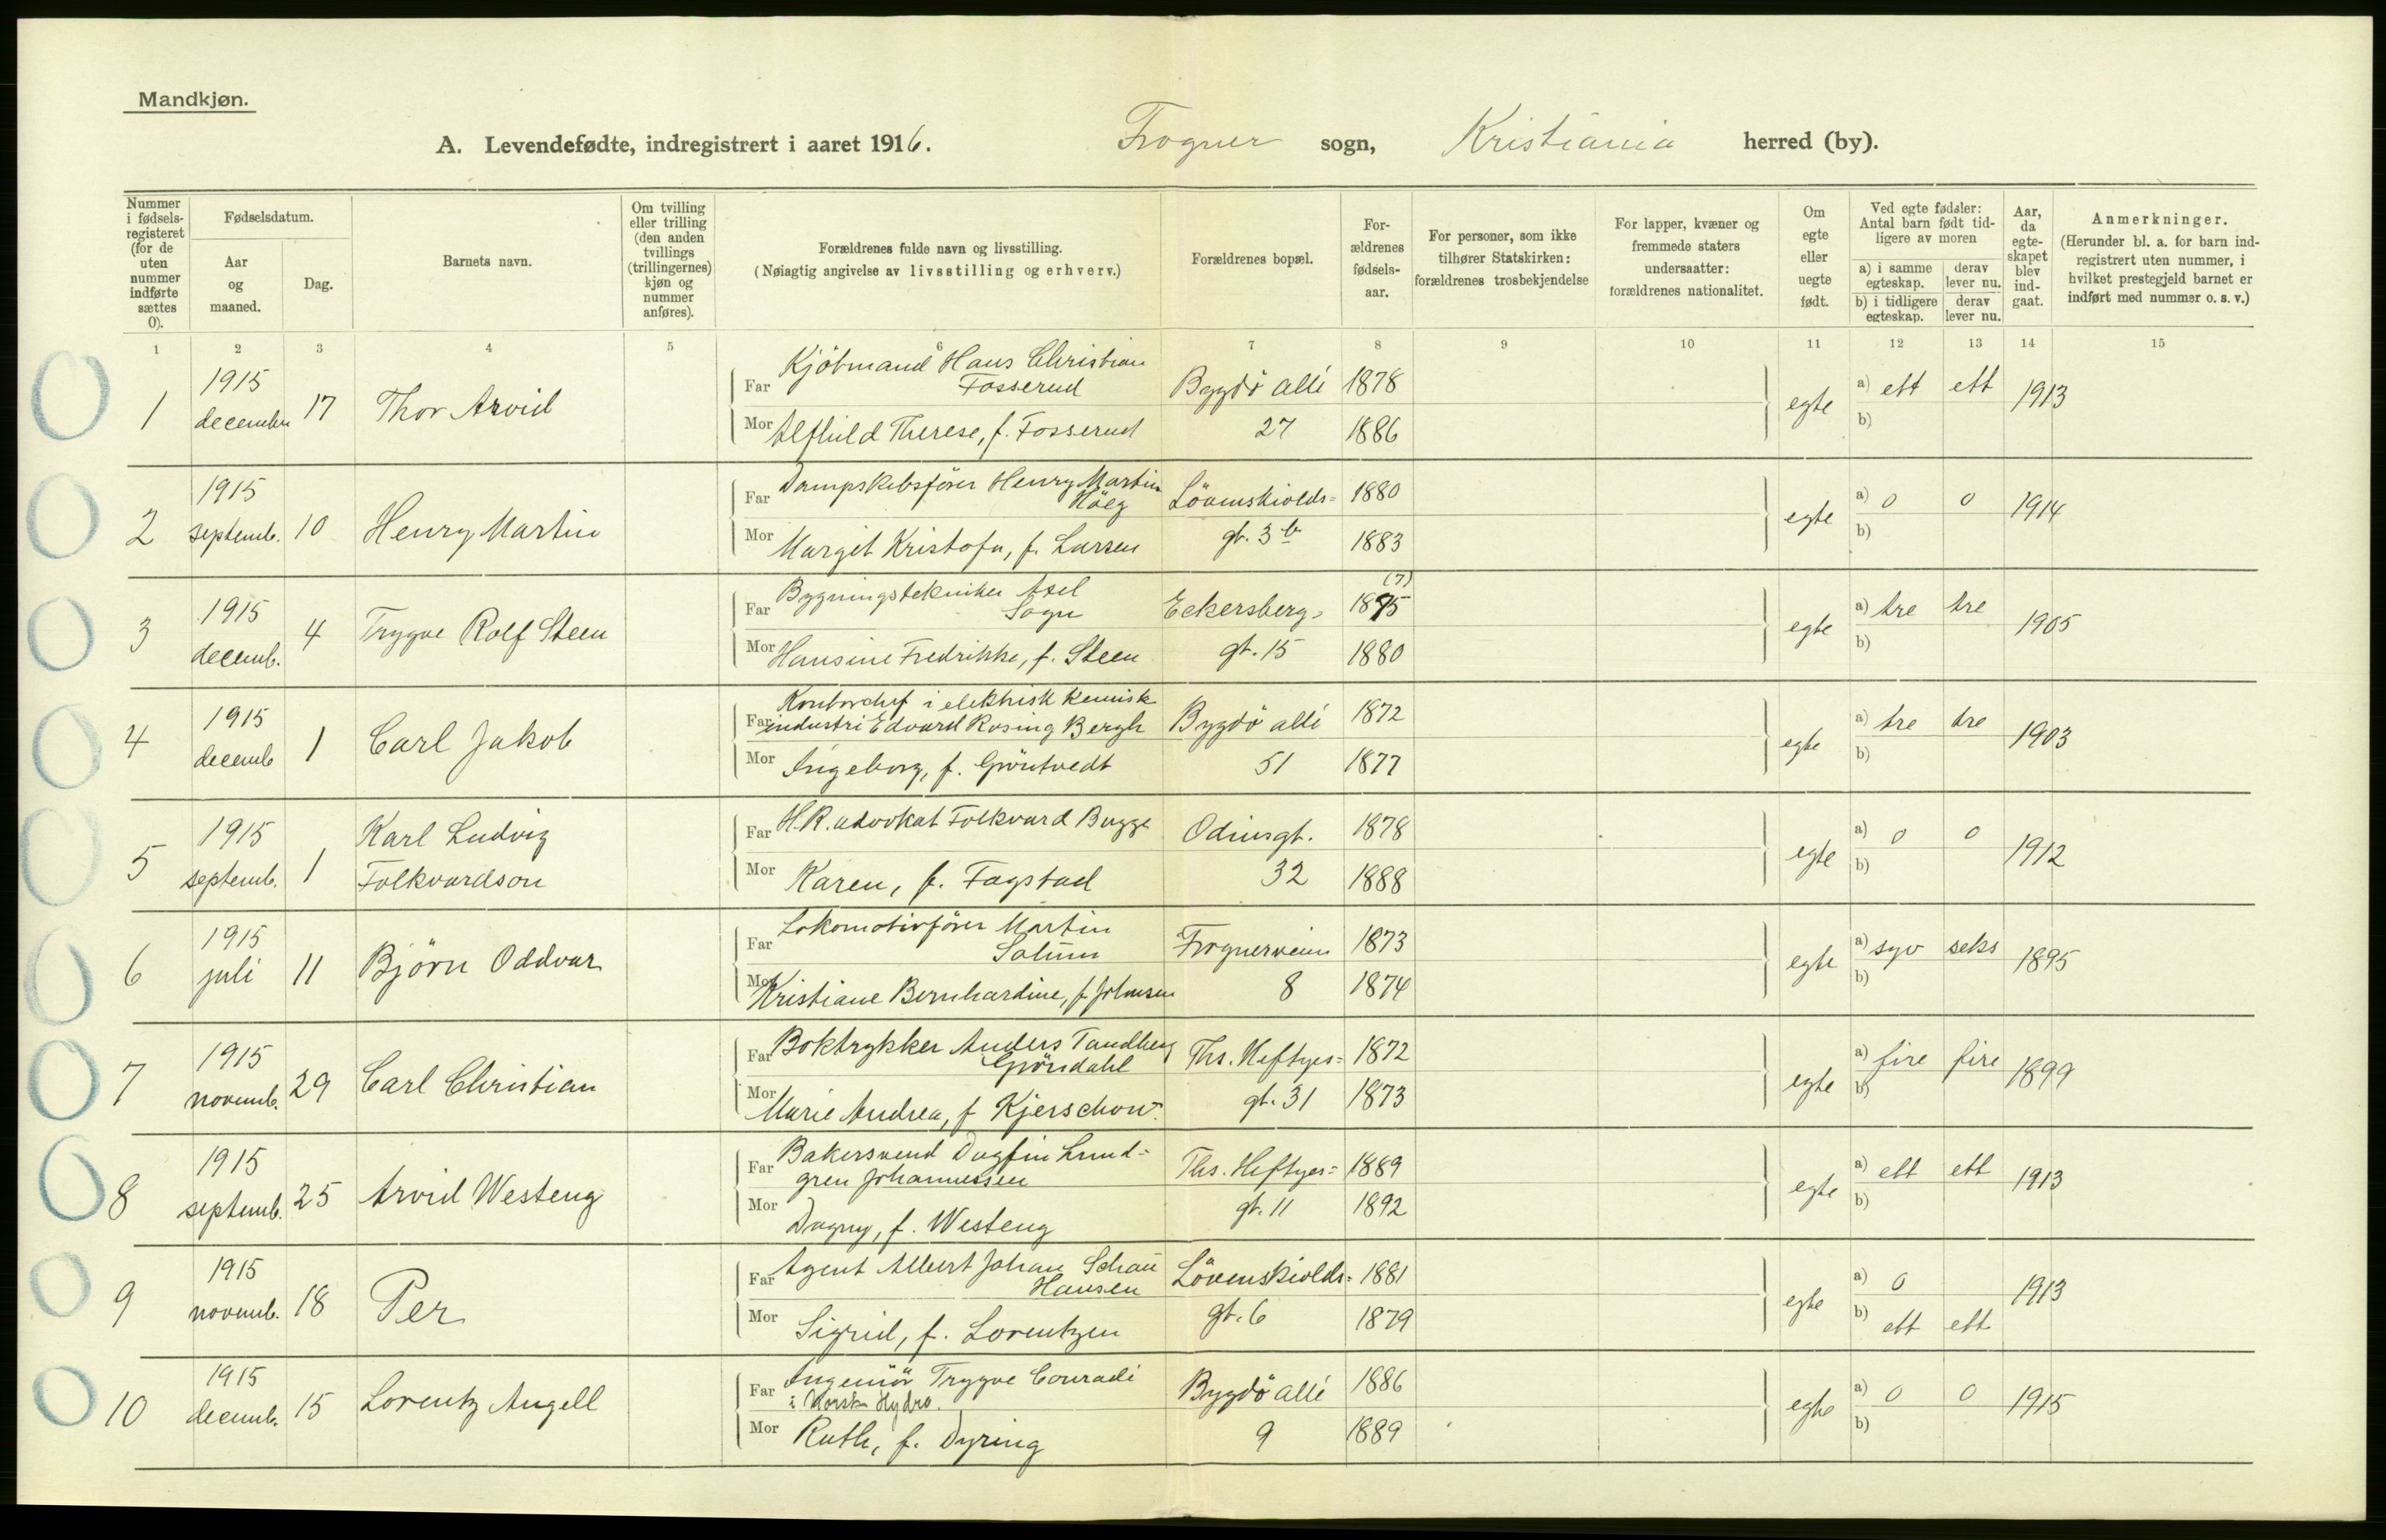 Mandkjøn.
A. Levendefødte, indregistrert i aaret 1916. Frogner sogn, Kristiania herred (by).
Nummer i fødsels-registeret (for de uten nummer indførte sættes 0).
Fødselsdatum.
Aar og maaned.
Dag.
Barnets navn.
Om tvilling eller trilling (den anden tvillings (trillingernes) kjøn og nummer anføres).
Forældrenes fulde navn og livsstilling.
(Nøiagtig angivelse av livsstilling og erhverv.)
Forældrenes bopæl.
For-ældrenes fødsels-aar.
For personer, som ikke tilhører Statskirken: forældrenes trosbekjendelse
For lapper, kvæner og fremmede staters undersaatter: forældrenes nationalitet.
Om egte eller uegte født.
Ved egte fødsler: Antal barn født tid-ligere av moren
a) i samme egteskap. derav lever nu.
b) i tidligere egteskap. derav lever nu.
Aar, da egte-skapet blev ind-gaat.
Anmerkninger.
(Herunder bl. a. for barn ind-registrert uten nummer, i hvilket prestegjeld barnet er indført med nummer o. s. v.)
1 2 3 4 5 6 7 8 9 10 11 12 13 14 15
1 1915 decembr 17 Thor Arvid
Far Kjöbmand Hans Christian Fosserud Bygdö allé 1878
Mor Alfhild Therese, f. Fosserud 27 1886
egte a) ett ett b) 1913
2 1915 septemb. 10 Henry Martin
Far Dampskibsförer Henry Martin Höeg Lövenskiolds= 1880
Mor Margit Kristofa, f. Larsen gt. 3 b 1883
egte a) 0 0 b) 1914
3 1915 decemb. 4 Trygve Rolf Steen
Far Bygningstekniker Axel Sogn Eckersberg= 1875 (7)
Mor Hansine Fredrikke, f. Steen gt. 15 1880
egte a) tre tre b) 1905
4 1915 decemb 1 Carl Jakob
Far Kontorchef i elektrisk kemisk industri Edvard Rosing Bergh Bygdö allé 1872
Mor Ingeborg, f. Gröntvedt 51 1877
egte a) tre tre b) 1903
5 1915 septemb. 1 Karl Ludvig Folkvardson
Far H.R.advokat Folkvard Bugge Odinsgt. 1878
Mor Karen, f. Fagstad 32 1888
egte a) 0 0 b) 1912
6 1915 juli 11 Björn Oddvar
Far Lokomotivförer Martin Frognerveien 1873
Mor Kristiane Bernhardine, f. Johnsen 8 1874
egte a) syv seks b) 1895
7 1915 novemb. 29 Carl Christian
Far Boktrykker Anders Tandberg Gröndahl Ths. Heftyes= 1872
Mor Marie Andrea, f Kjerschow. gt. 31 1873
egte a) fire fire b) 1899
8 1915 septemb. 25 Arvid Westeng
Far Bakersvend Dagfin Lund-gren Johannessen Ths. Heftyes= 1889
Mor Dagny, f. Westeng gt. 11 1892
egte a) ett ett b) 1913
9 1915 novemb. 18 Per
Far Agent Albert Johan Schau Hansen Lövenskiolds= 1881
Mor Sigrid, f. Lorentzen gt. 6 1879
egte a) 0 b) ett ett 1913
10 1915 decemb. 15 Lorentz Angell
Far Ingeniör Trygve Conradi i Norsk Hydro. Bygdö allé 1886
Mor Ruth, f. Dyring 9 1889
egte a) 0 0 b) 1915